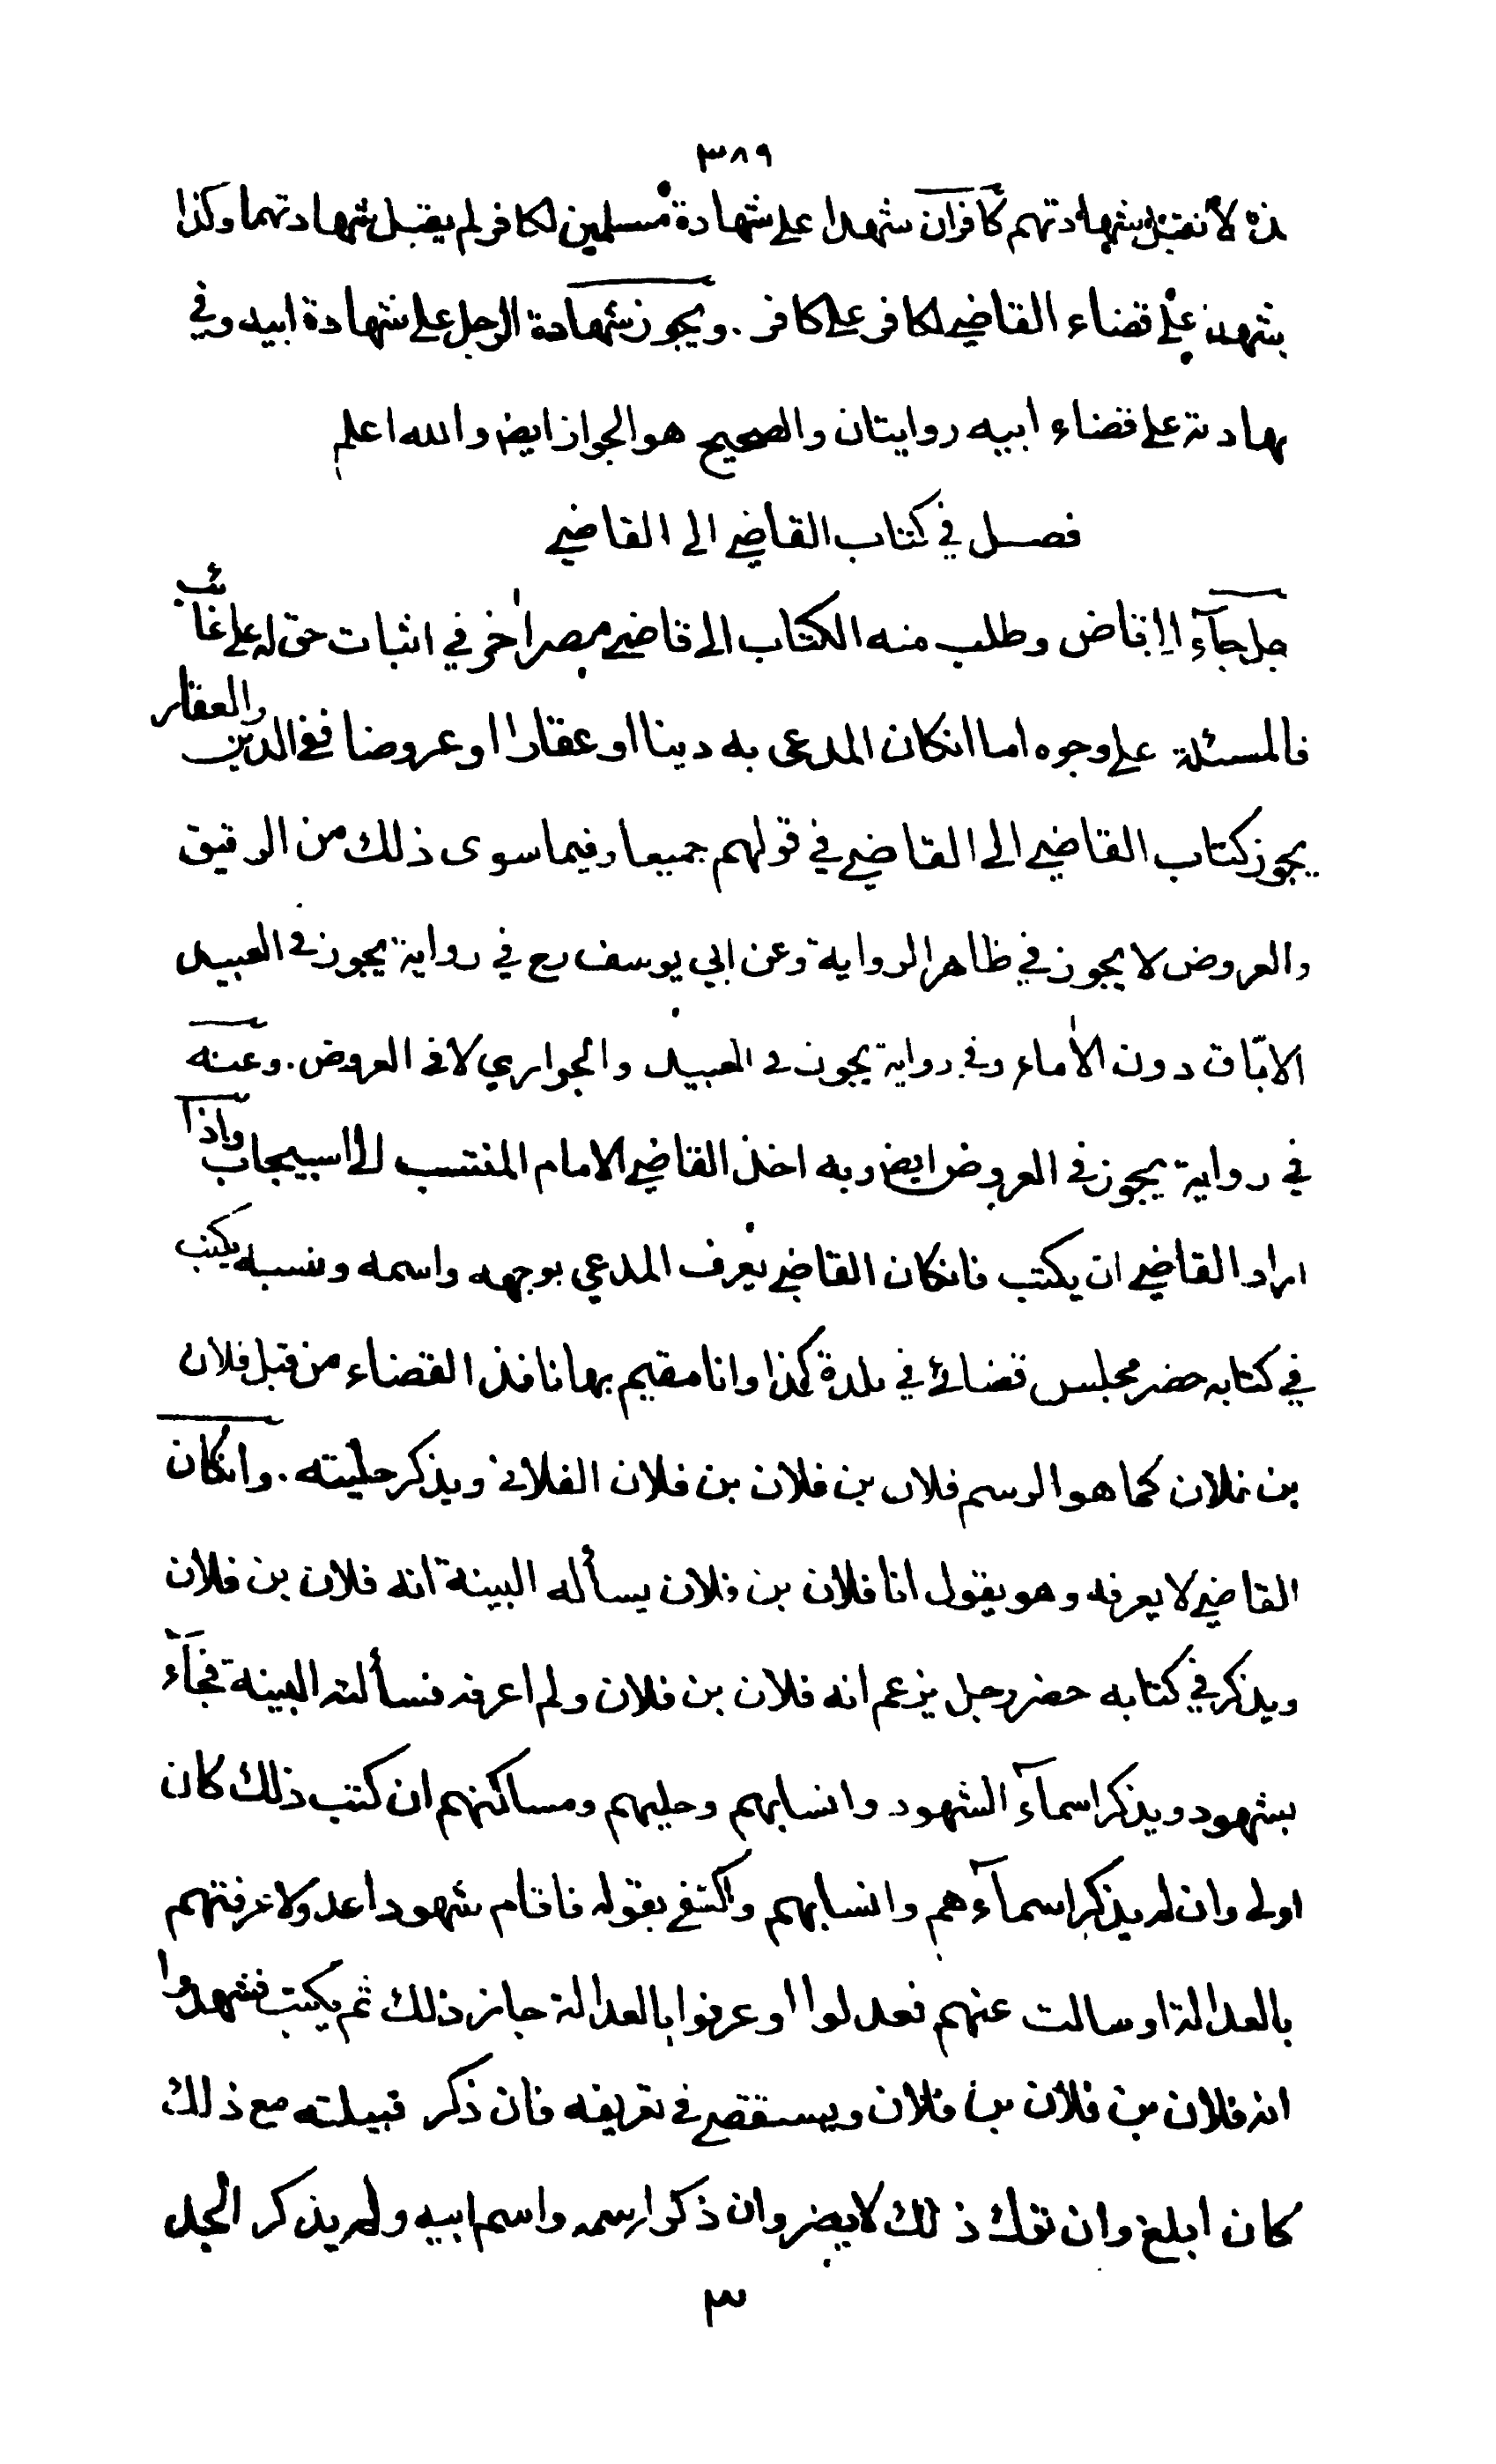 ٣٨٩
لا تقبل شهادتهم كافران شهدا على شهادة مسلمين لكافر لم يقبل شهادتهما وكذا
على قضاء القاضي لكافر على كافر . ويجوز شهادة الرجل على شهادة ابيه وفي
على قضاء ابيه روايتان والصحيح هو الجواز ايض والله اعلم
فصل في كتاب القاضي الى القاضي
جل جآء الى قاض وطلب منه الكتاب الى قاضي مصر اخر في اثبات حق له على غائب
فالمسئلة على وجوه اما انكان المدعى به دينا او عقارا او عروضا ففي الدين والعقار
يجوز كتاب القاضي الى القاضي في قولهم جميعا وفيما سوى ذلك من الرقيق
والعروض لا يجوز في ظاهر الرواية وعن ابي يوسف رع في رواية يجوز في العبيد
الابّاق دون الاماء وفي رواية يجوز في العبيد والجواري لا في العروض . وعنه
في رواية يجوز في العروض ايض وبه اخذ القاضي الامام المنتسب الى اسبيجاب واذا
اراد القاضي ان يكتب فانكان القاضي يعرف المدعي بوجهه واسمه ونسبه يكتب
في كتابه حضر مجلس قضائي في بلدة كذا وانا مقيم بها نافذ القضاء من قبل فلان
بن فلان كما هو الرسم فلان بن فلان بن فلان الفلاني ويذكر حليته . وانكان
القاضي لا يعرفه وهو يقول انا فلان بن فلان يسأله البينة انه فلان بن فلان
ويذكر في كتابه حضر رجل يزعم انه فلان بن فلان ولم اعرفه فسألته البينة فجآء
بشهود ويذكر اسمآء الشهود وانسابهم وحليهم ومساكنهم ان كتب ذلك كان
اولى وان لم يذكر اسمآءهم وانسابهم واكتفى بقوله فاقام شهودا عدولا عرفتهم
بالعدالة او سالت عنهم فعدلوا او عرفوا بالعدالة جاز ذلك ثم يكتب فشهدوا
انه فلان بن فلان بن فلان ويستقصي في تعريفه فان ذكر قبيلته مع ذلك
كان ابلغ وان ترك ذلك لا يضر وان ذكر اسمه واسم ابيه ولم يذكر الجد
٣